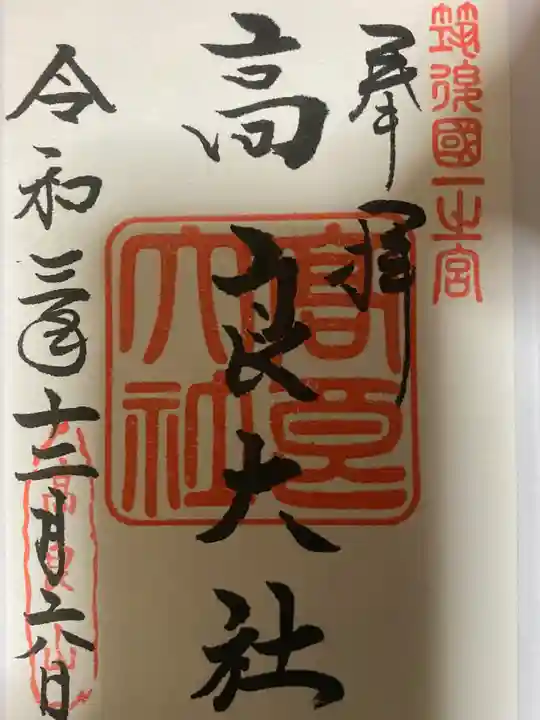 筑後國一之宮
奉拝
高良大社
高良大社
令和三年十二月六日
高良山